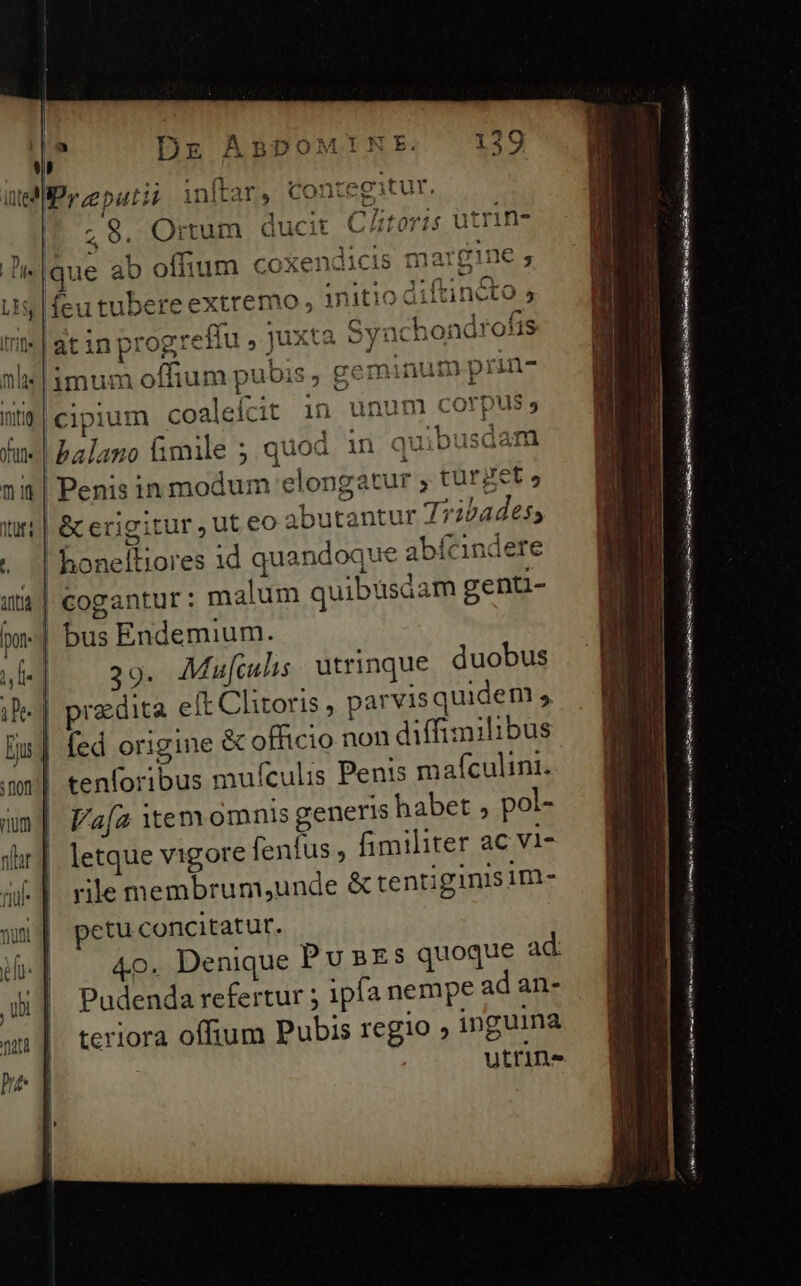 De Abdomine. 139
Præputii inſtar, contegitur.
38. Ortum ducit Clitoris utrin-
que ab oſſium coxendicis margine,
ſeu tubere extremo, initio diſtincto,
at in progreſſu, juxta Synchondroſis
imum oſſium pubis, geminum prin-
cipium coaleſcit in unum corpus,
balano ſimile; quod in quibusdam
Penis in modum elongatur, turget,
& erigitur, ut eo abutantur Tribades,
honeſtiores id quandoque abſcindere
cogantur: malum quibusdam genti-
bus Endemium.
39. Muſculis utrinque duobus
prædita eſt Clitoris, parvis quidem,
ſed origine & officio non diſſimilibus
tenſoribus muſculis Penis maſculini.
Vaſa item omnis generis habet, pol-
letque vigore ſenſus, ſimiliter ac vi-
rile membrum, unde & tentiginis im-
petu concitatur.
40. Denique Pubes quoque ad
Pudenda refertur; ipſa nempe ad an-
teriora oſſium Pubis regio, inguina
utrin-